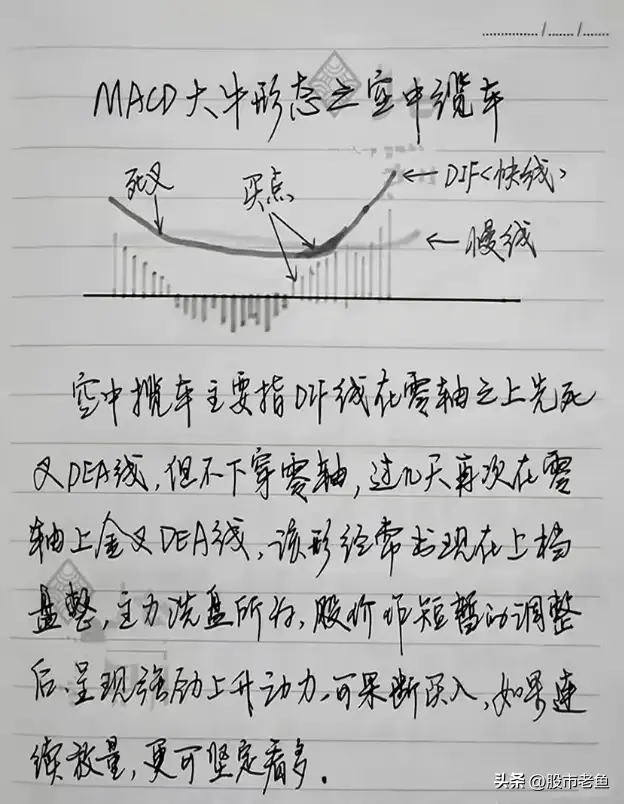 MACD大牛形态之空中缆车
死叉
买点
←DIF<快线>
←慢线
空中揽车主要指DIF线在零轴之上先死
叉DEA线,但不下穿零轴,过几天再次在零
轴上金叉DEA线,该形经常出现在上档
盘整,主力洗盘所为,股价作短暂的调整
后.呈现强劲上升动力,可果断买入,如果连
续放量,更可坚定看多.
头条 @股市老鱼